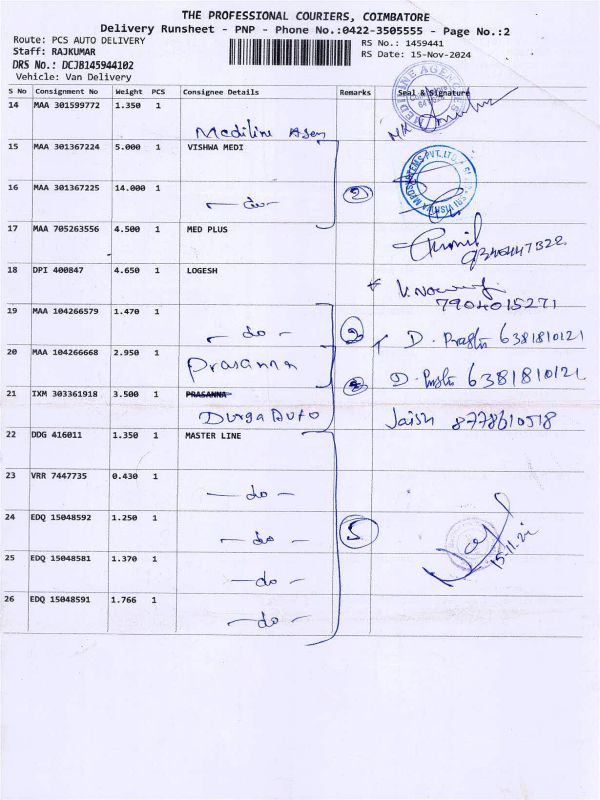 THE PROFESSIONAL COURIERS, COIMBATORE
Delivery Runsheet - PNP - Phone No.:0422-3505555 - Page No.:2
Route: PCS AUTO DELIVERY
RS No.: 1459441
Staff: RAJKUMAR
RS Date: 15-Nov-2024
DRS No.: DCJB145944102
Vehicle: Van Delivery
S No Consignment No Weight PCS Consignee Details Remarks Seal & Signature
14 MAA 301599772 1.350 1
Mediline Agen
15 MAA 301367224 5.000 1 VISHWA MEDI
16 MAA 301367225 14.000 1
- do - 2
17 MAA 705263556 4.500 1 MED PLUS
18 DPI 400847 4.650 1 LOGESH
7904015271
19 MAA 104266579 1.470 1
- do - 2 6381810121
20 MAA 104266668 2.950 1 Prasanna
2 6381810121
21 IXM 303361918 3.500 1 PRASANNA
Durga Auto Jaish
22 DDG 416011 1.350 1 MASTER LINE
23 VRR 7447735 0.430 1
- do -
24 EDQ 15048592 1.250 1
- do - 5
25 EDQ 15048581 1.370 1
- do -
26 EDQ 15048591 1.766 1
- do -